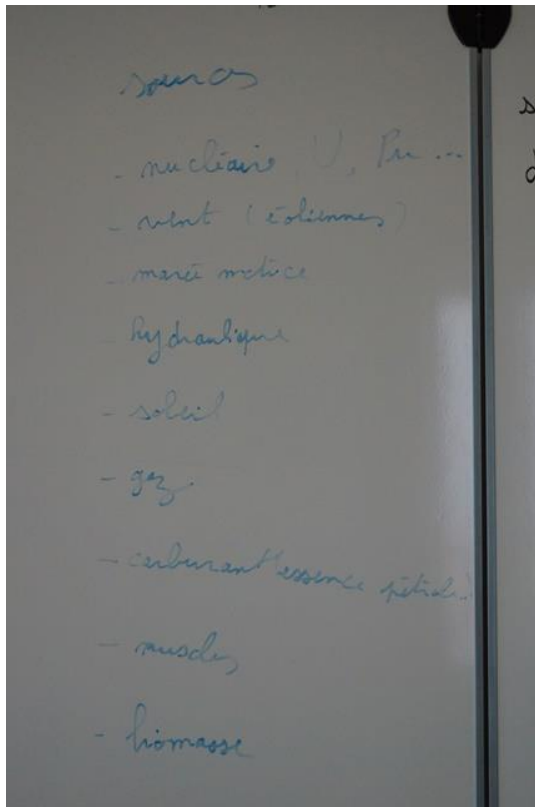 sources
- nucléaire U, Pu ...
- vent (éoliennes)
- marée motrice
- hydraulique
- soleil
- gaz
- carburant (essence pétrole)
- muscles
- biomasse
s